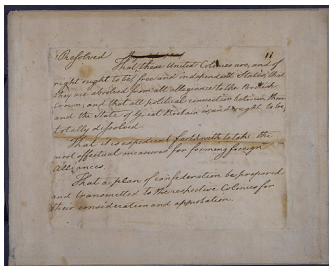 Resolved 11
That these United Colonies are, and of
right ought to be, free and independent States, that
they are absolved from all allegiance to the British
Crown, and that all political connection between them
and the State of Great Britain is and ought to be,
totally dissolved.
That it is expedient forthwith to take the
most effectual measures for forming foreign
Alliances.
That a plan of confederation be prepared
and transmitted to the respective Colonies for
their consideration and approbation.